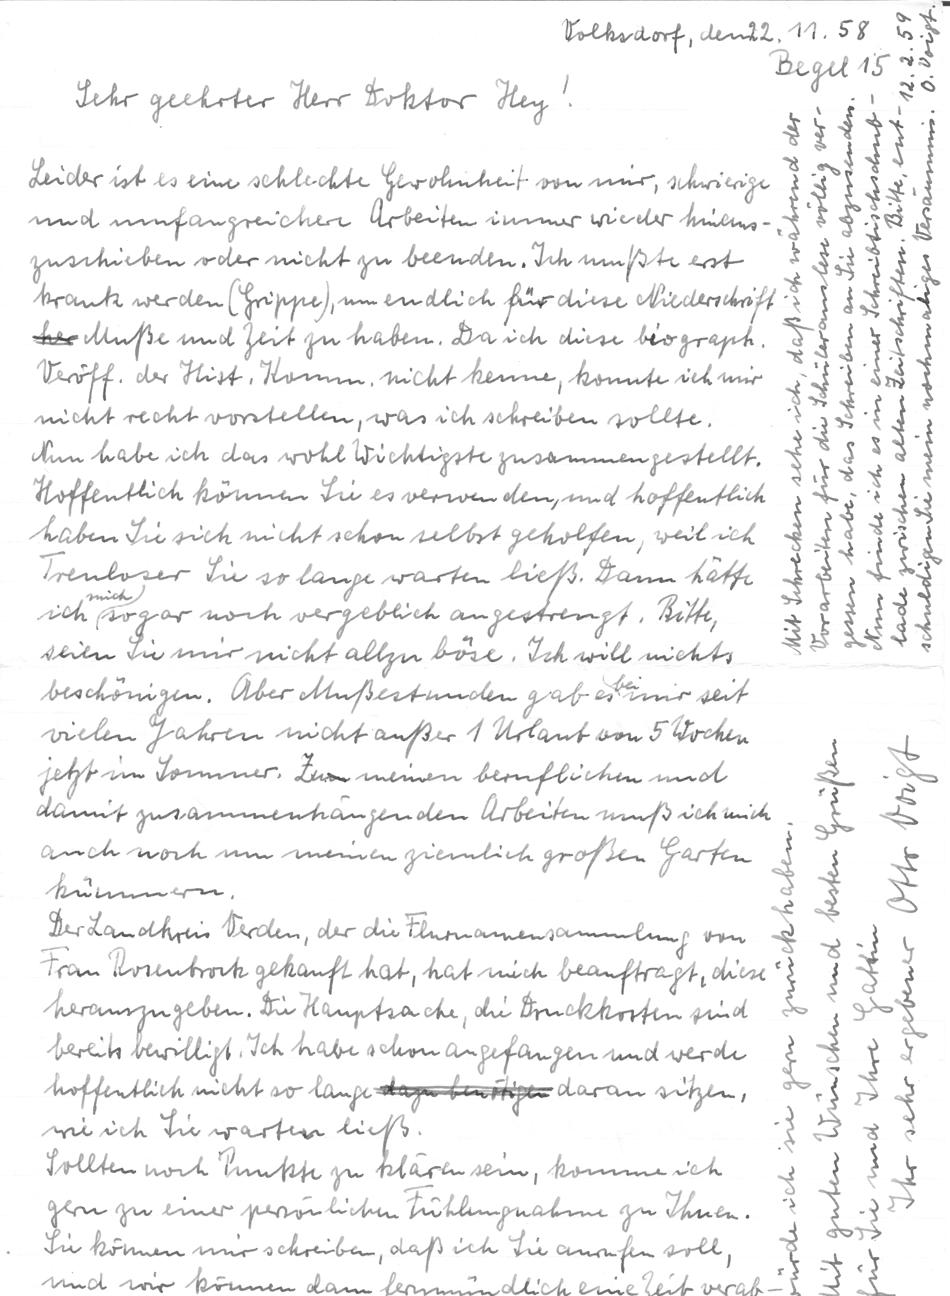 Volksdorf, den 22. 11. 58
Begel 15
Sehr geehrter Herr Doktor Hey!
Leider ist es eine schlechte Gewohnheit von mir, schwierige
und umfangreichere Arbeiten immer wieder hinaus-
zuschieben oder nicht zu beenden. Ich mußte erst
krank werden (Grippe), um endlich für diese Niederschrift
her Muße und Zeit zu haben. Da ich diese biograph.
Veröff. der Hist. Komm. nicht kenne, konnte ich mir
nicht recht vorstellen, was ich schreiben sollte.
Nun habe ich das wohl Wichtigste zusammengestellt.
Hoffentlich können Sie es verwenden, und hoffentlich
haben Sie sich nicht schon selbst geholfen, weil ich
Treuloser Sie so lange warten ließ. Dann hätte
ich mich sogar noch vergeblich angestrengt. Bitte,
seien Sie mir nicht allzu böse. Ich will nichts
beschönigen. Aber Mußestunden gab es bei mir seit
vielen Jahren nicht außer 1 Urlaub von 5 Wochen
jetzt im Sommer. Zu meinen beruflichen und
damit zusammenhängenden Arbeiten muß ich mich
auch noch um meinen ziemlich großen Garten
kümmern.
Der Landkreis Verden, der die Flurnamensammlung von
Frau Rosenbrock gekauft hat, hat mich beauftragt, diese
herauszugeben. Die Hauptsache, die Druckkosten sind
bereits bewilligt. Ich habe schon angefangen und werde
hoffentlich nicht so lange dazu benötigen daran sitzen,
wie ich Sie warten ließ.
Sollten noch Punkte zu klären sein, komme ich
gern zu einer persönlichen Fühlungnahme zu Ihnen.
Sie können mir schreiben, daß ich Sie anrufen soll,
und wir können dann fernmündlich eine Zeit verab-
würde ich sie gern zurückhaben.
Mit guten Wünschen und besten Grüßen
für Sie und Ihre Gattin
Ihr sehr ergebener Otto Voigt
Mit Schrecken sehe ich, daß ich während der
Vorarbeiten für die Schülerauslese völlig ver-
gessen habe, das Schreiben an Sie abzusenden.
Nun finde ich es in einer Schreibtischschub-
lade zwischen alten Zeitschriften. Bitte, ent-
schuldigen Sie mein nochmaliges Versäumnis. O. Voigt.
12. 2. 59